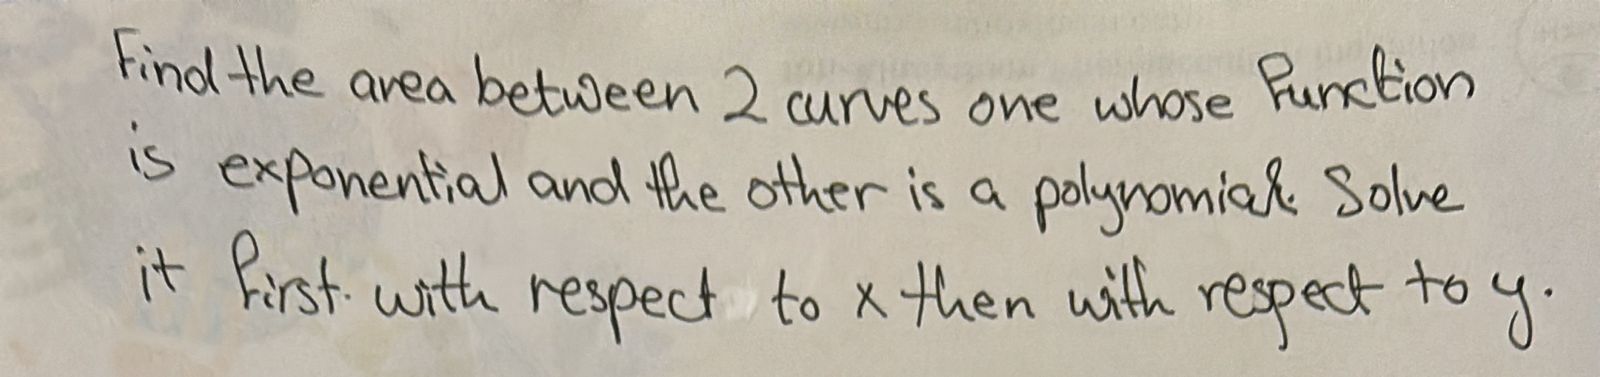 Find the area between 2 curves one whose function
is exponential and the other is a polynomial. Solve
it first. with respect to x then with respect to y.